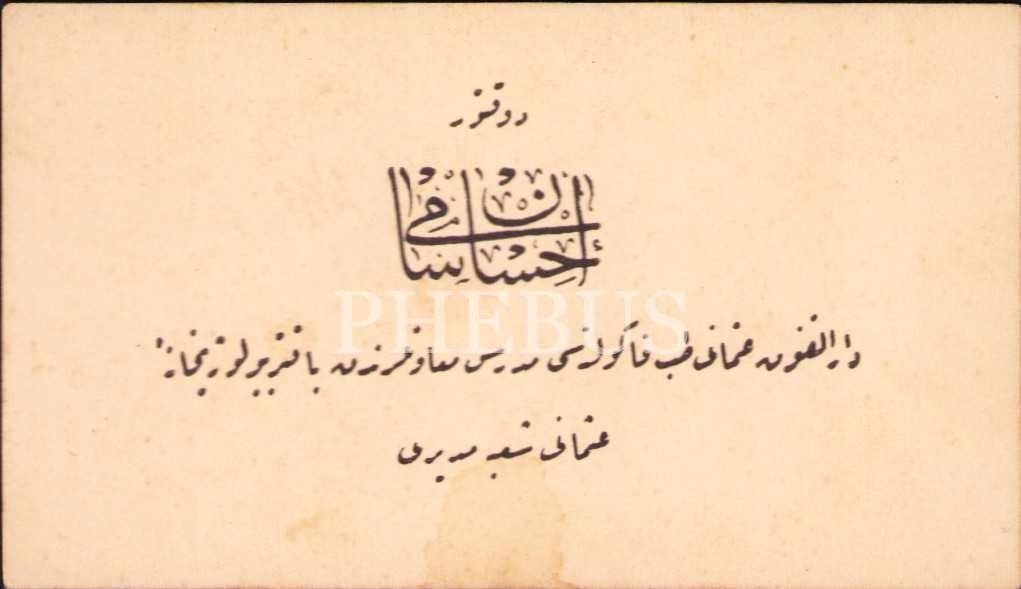 دوقتور
احسان سامی
PHEBUS
دار الفنون عثمانی طب فاكولته‌سی مدرس معاونلرندن باقتریولوژیخانهٔ
عثمانی شعبه مدیری